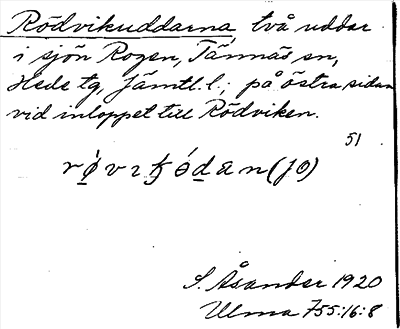 Rödvikuddarna, två uddar
i sjön Rogen, Tännäs sn,
Hede tg, Jämtl. l.; på östra sidan
vid inloppet till Rödviken.
51
S. Åsander 1920
Ulma 755:16:8